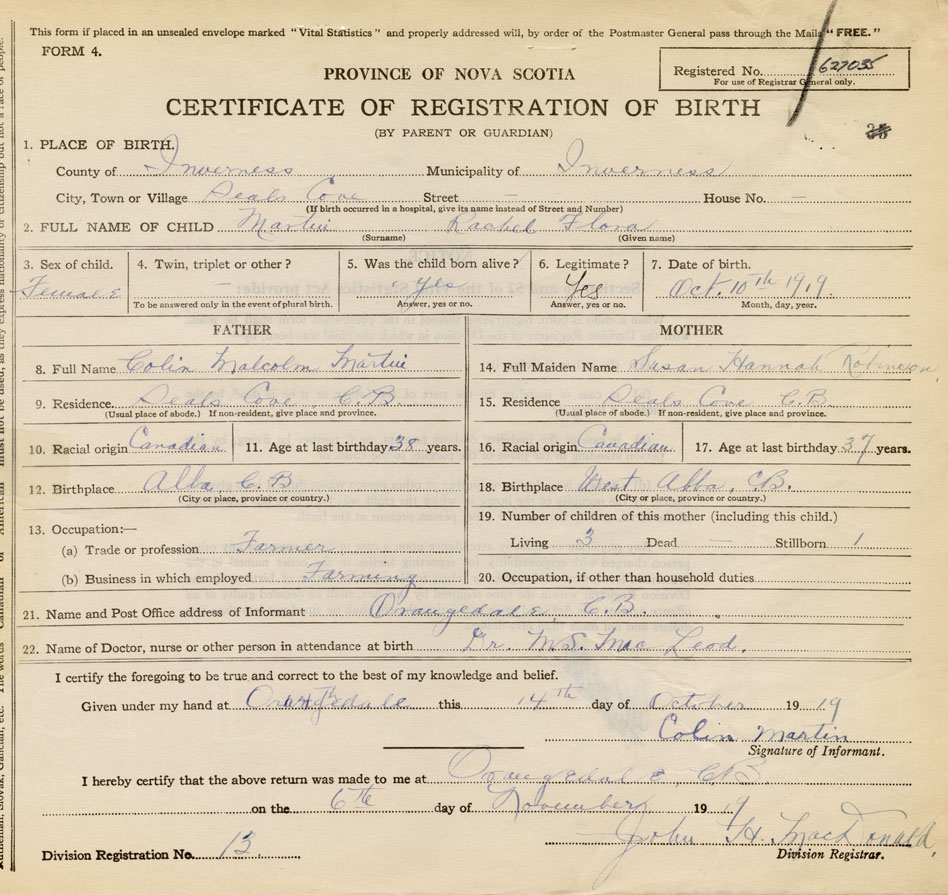 This form if placed in an unsealed envelope marked "Vital Statistics" and properly addressed will, by order of the Postmaster General pass through the Mails "FREE."
FORM 4.
Registered No. 627035
For use of Registrar General only.
PROVINCE OF NOVA SCOTIA
CERTIFICATE OF REGISTRATION OF BIRTH
(BY PARENT OR GUARDIAN)
1. PLACE OF BIRTH.
County of Inverness Municipality of Inverness
City, Town or Village Seals Cove Street — House No. —
(If birth occurred in a hospital, give its name instead of Street and Number)
2. FULL NAME OF CHILD Martin Rachel Flora
(Surname) (Given name)
3. Sex of child. 4. Twin, triplet or other? 5. Was the child born alive? 6. Legitimate? 7. Date of birth.
Female — Yes Yes Oct. 10th 1919.
To be answered only in the event of plural birth. Answer, yes or no. Answer, yes or no. Month, day, year.
FATHER
8. Full Name Colin Malcolm Martin
9. Residence Seals Cove C.B.
(Usual place of abode.) If non-resident, give place and province.
10. Racial origin Canadian 11. Age at last birthday 38 years.
12. Birthplace Alba, C.B
(City or place, province or country.)
13. Occupation:—
(a) Trade or profession Farmer
(b) Business in which employed Farming
MOTHER
14. Full Maiden Name Susan Hannah Robinson
15. Residence Seals Cove C.B.
(Usual place of abode.) If non-resident, give place and province.
16. Racial origin Canadian 17. Age at last birthday 37 years.
18. Birthplace West Alba, C.B.
(City or place, province or country.)
19. Number of children of this mother (including this child.)
Living 3 Dead — Stillborn 1
20. Occupation, if other than household duties
21. Name and Post Office address of Informant Orangedale C.B.
22. Name of Doctor, nurse or other person in attendance at birth Dr. M.S. Mac Leod.
I certify the foregoing to be true and correct to the best of my knowledge and belief.
Given under my hand at Orangedale this 14th day of October 1919
Colin Martin
Signature of Informant.
I hereby certify that the above return was made to me at Orangedale, C.B
on the 6th day of November 1919
John H. MacDonald,
Division Registrar.
Division Registration No. 13